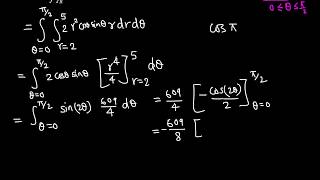 0 ≤ θ ≤ π/2
= ∫_{θ=0}^{π/2} ∫_{r=2}^{5} 2 r² cosθ sinθ r dr dθ
cos π
= ∫_{θ=0}^{π/2} 2 cosθ sinθ [r⁴/4]_{r=2}^{5} dθ
= ∫_{θ=0}^{π/2} sin(2θ) 609/4 dθ = 609/4 [-cos(2θ)/2]_{θ=0}^{π/2}
= -609/8 [